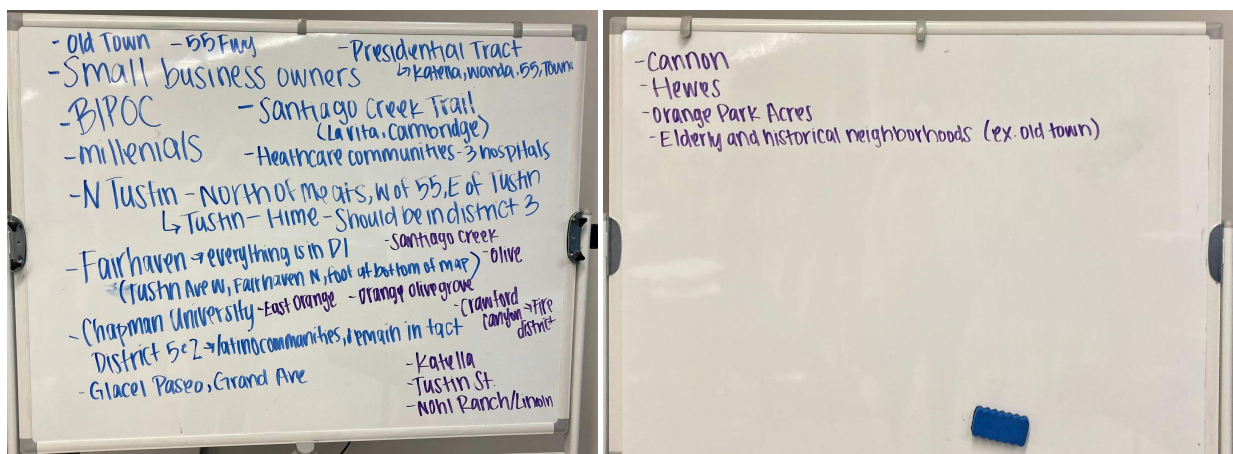 - Old Town - 55 Fwy - Presidential Tract
↳ Katella, Wanda, 55, Town
- Small business owners
- BIPOC - Santiago Creek Trail
(La Vita, Cambridge)
- millenials - Healthcare communities - 3 hospitals
- N Tustin - North of Meats, W of 55, E of Tustin
↳ Tustin - Hime - Should be in district 3
- Santiago Creek
- Fairhaven → everything is in D1 - Olive
(Tustin Ave W, Fairhaven N, foot at bottom of map)
- Chapman University - East Orange - Orange Olive grove
- Crawford
canyon → Fire
district
District 5 & 2 → latino communities, remain in tact
- Glacel Paseo, Grand Ave
- Katella
- Tustin St.
- Nohl Ranch/Lincoln
- Cannon
- Hewes
- Orange Park Acres
- Elderly and historical neighborhoods (ex. old town)